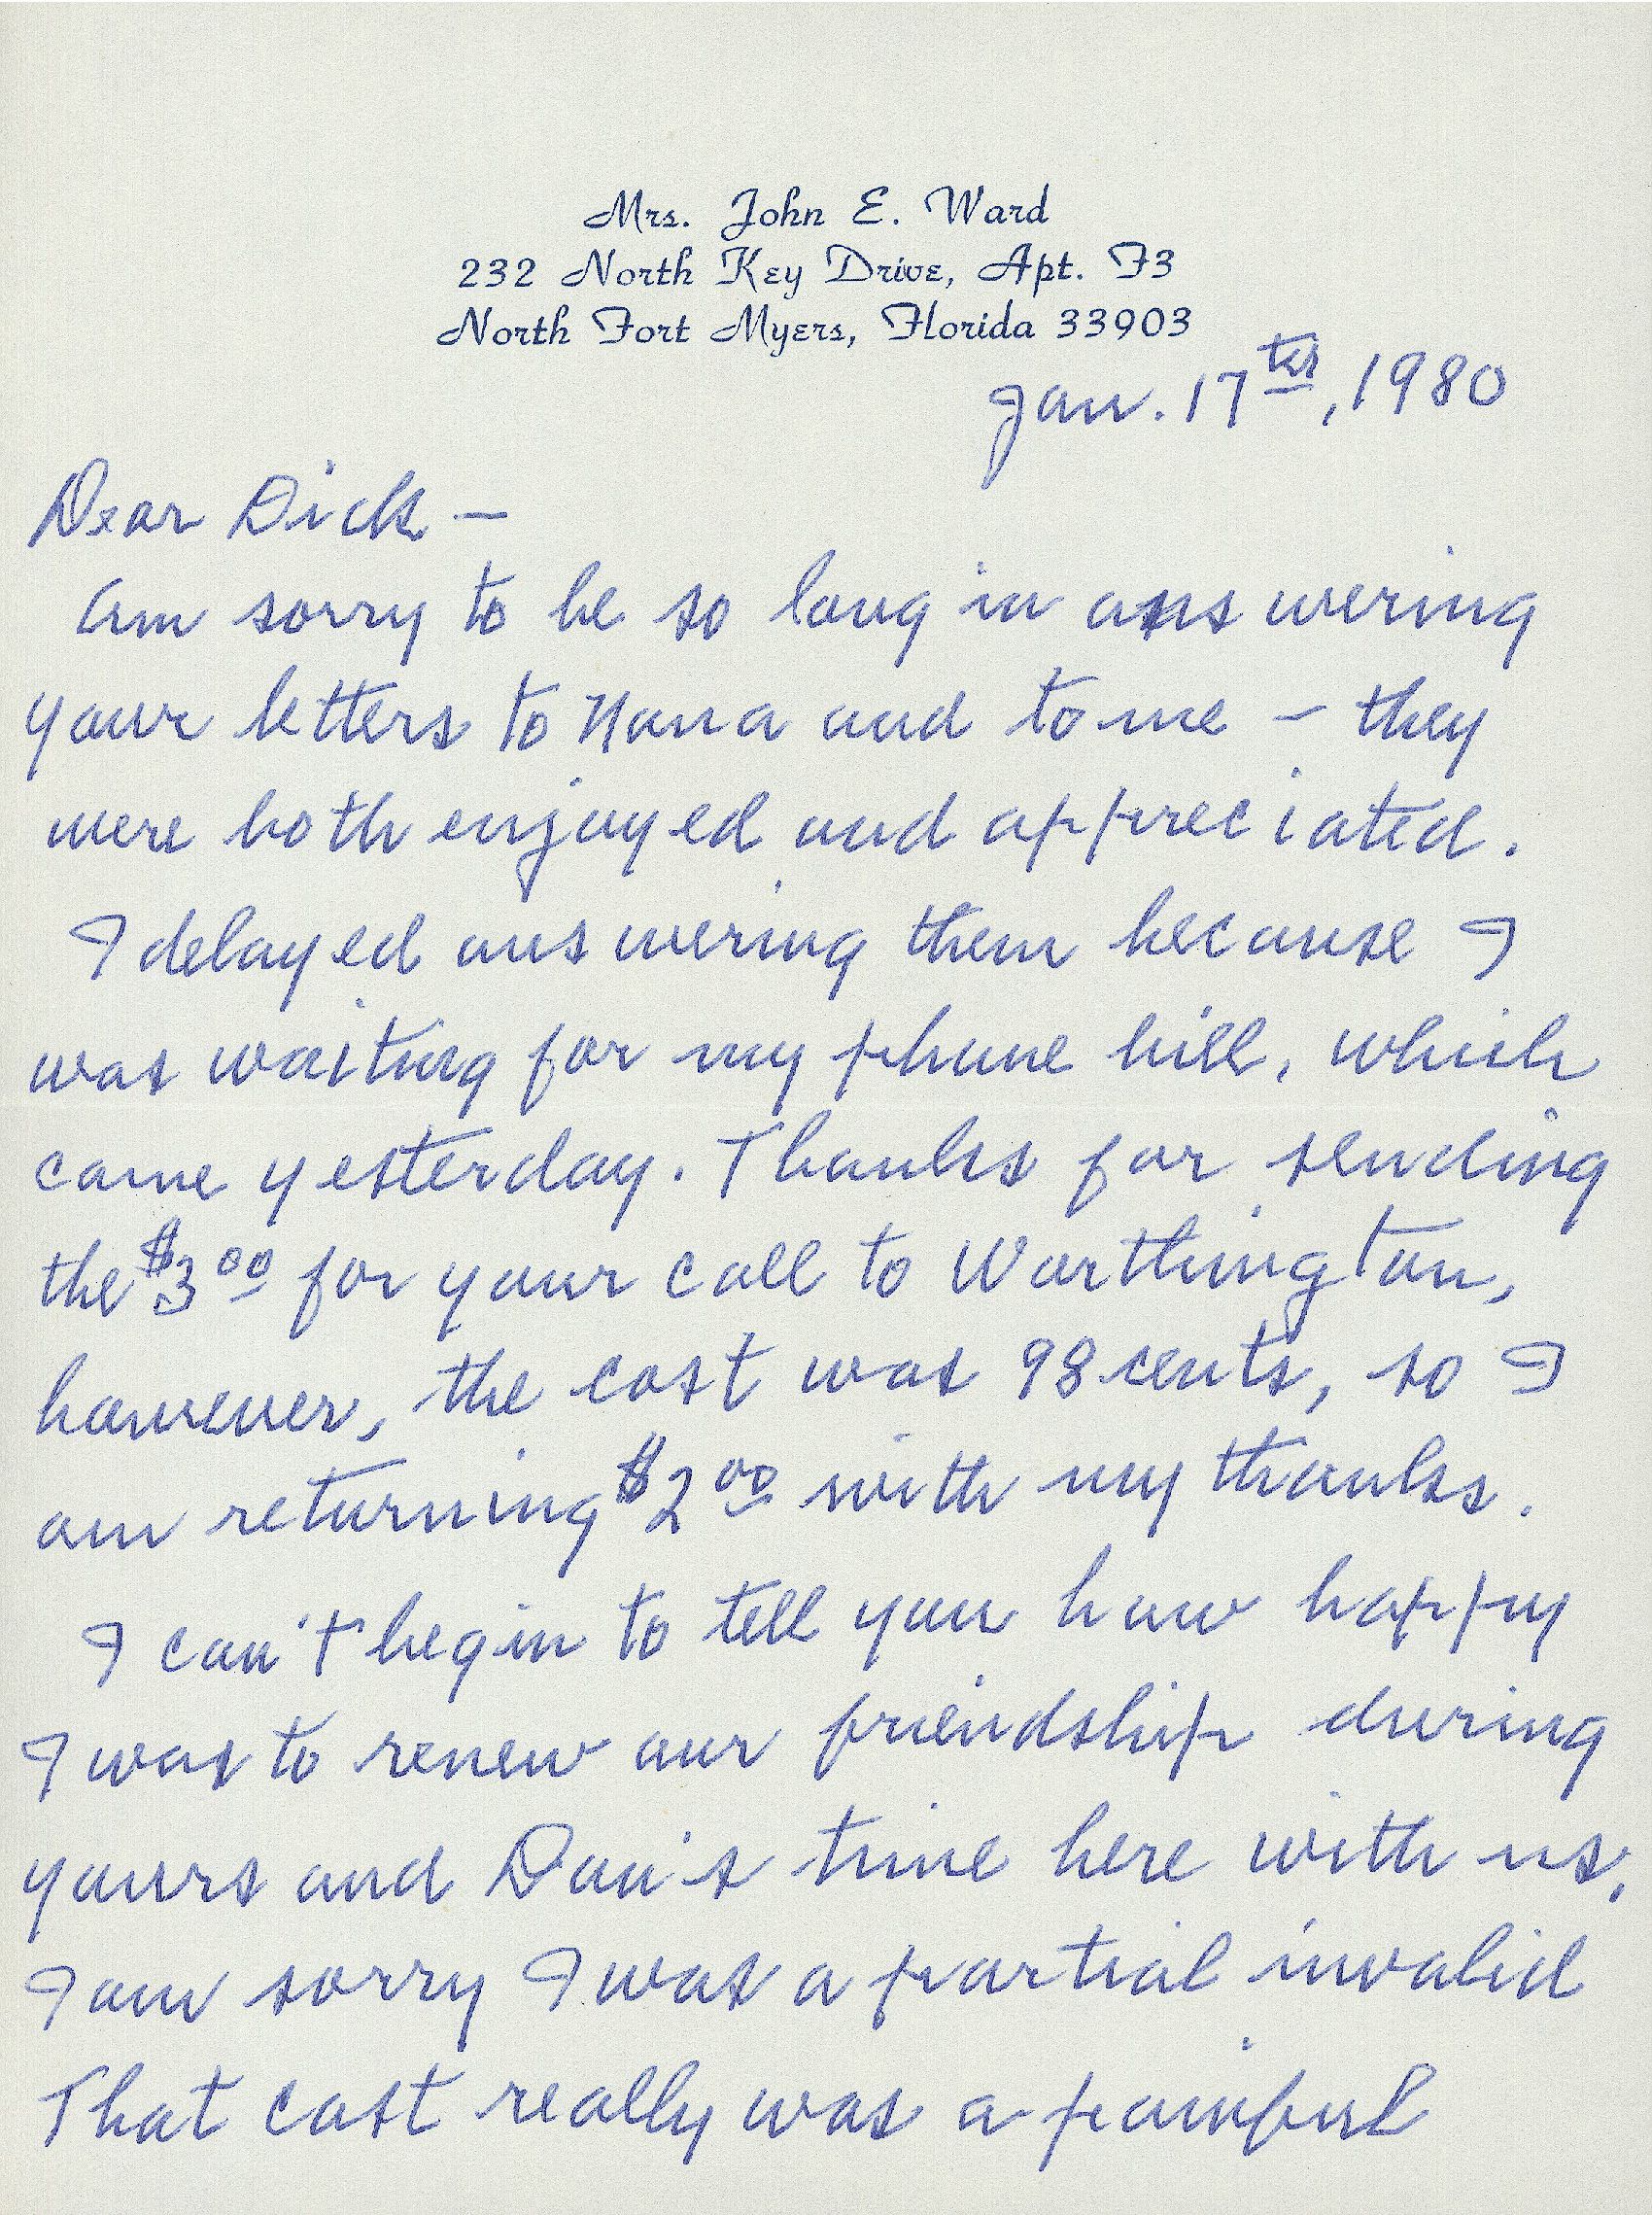 Mrs. John E. Ward
232 North Key Drive, Apt. F3
North Fort Myers, Florida 33903
Jan. 17th, 1980
Dear Dick —
Am sorry to be so long in answering
your letters to Nana and to me – they
were both enjoyed and appreciated.
I delayed answering them because I
was waiting for my phone bill, which
came yesterday. Thanks for sending
the $3 00 for your call to Worthington,
however, the cost was 98 cents, so I
am returning $2 00 with my thanks.
I can't begin to tell you how happy
I was to renew our friendship during
yours and Dan's time here with us,
I am sorry I was a partial invalid
That cast really was a painful